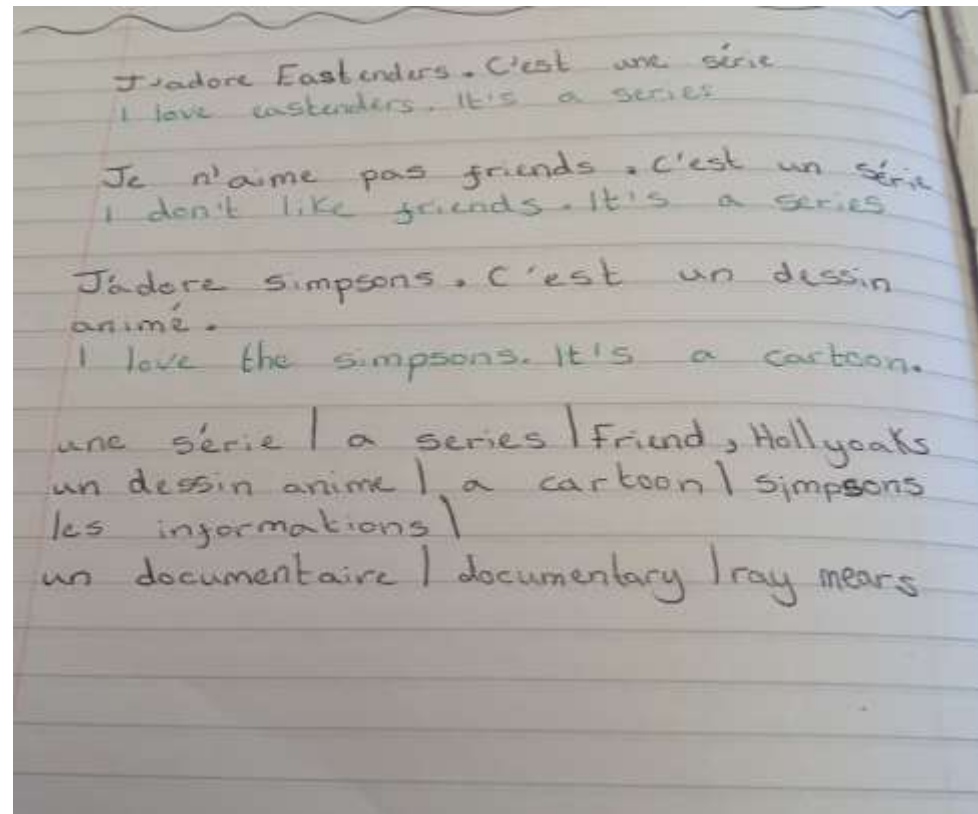 J'adore Eastenders. C'est une série
I love eastenders. It's a series
Je n'aime pas friends. C'est un série
I don't like friends. It's a series
J'adore simpsons. C'est un dessin
animé.
I love the simpsons. It's a cartoon.
une série | a series | Friend, Hollyoaks
un dessin anime | a cartoon | simpsons
les informations |
un documentaire | documentary | ray mears